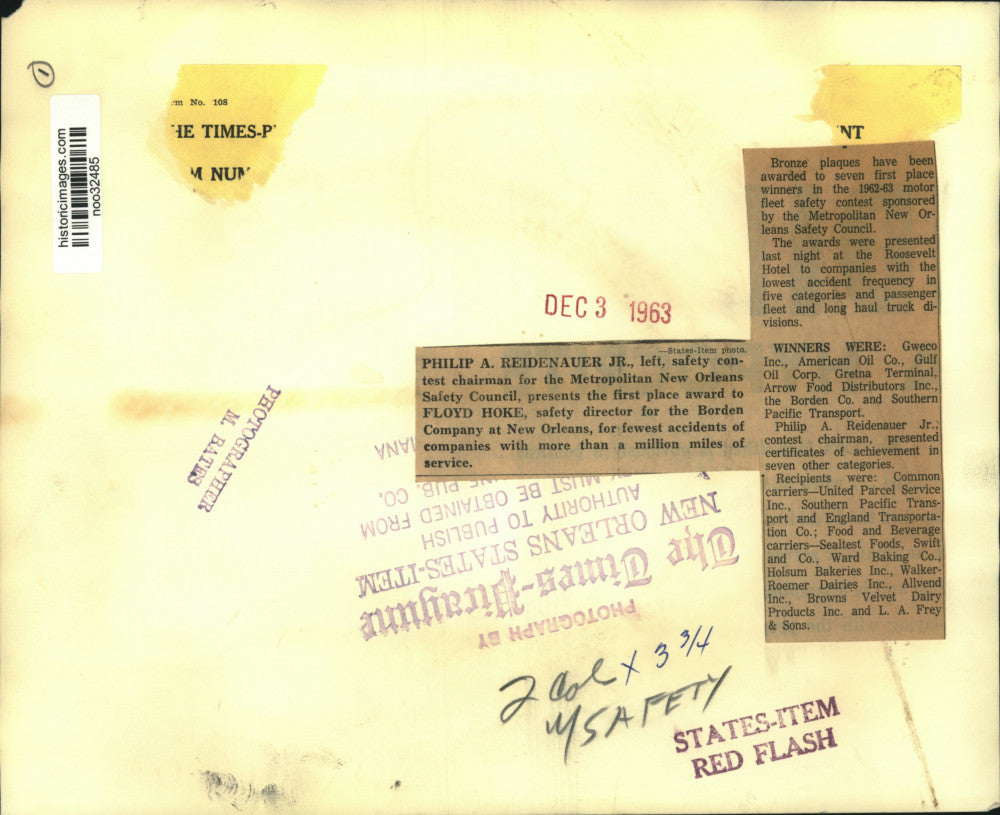 1
rm No. 108
HE TIMES-P
M NUM
NT
historicimages.com
noo32485
DEC 3 1963
—States-Item photo.
PHILIP A. REIDENAUER JR., left, safety con-
test chairman for the Metropolitan New Orleans
Safety Council, presents the first place award to
FLOYD HOKE, safety director for the Borden
Company at New Orleans, for fewest accidents of
companies with more than a million miles of
service.
Bronze plaques have been
awarded to seven first place
winners in the 1962-63 motor
fleet safety contest sponsored
by the Metropolitan New Or-
leans Safety Council.
The awards were presented
last night at the Roosevelt
Hotel to companies with the
lowest accident frequency in
five categories and passenger
fleet and long haul truck di-
visions.
WINNERS WERE: Gweco
Inc., American Oil Co., Gulf
Oil Corp. Gretna Terminal,
Arrow Food Distributors Inc.,
the Borden Co. and Southern
Pacific Transport.
Philip A. Reidenauer Jr.,
contest chairman, presented
certificates of achievement in
seven other categories.
Recipients were: Common
carriers—United Parcel Service
Inc., Southern Pacific Trans-
port and England Transporta-
tion Co.; Food and Beverage
carriers—Sealtest Foods, Swift
and Co., Ward Baking Co.,
Holsum Bakeries Inc., Walker-
Roemer Dairies Inc., Allvend
Inc., Browns Velvet Dairy
Products Inc. and L. A. Frey
& Sons.
PHOTOGRAPHER
M. BATES
PHOTOGRAPH BY
The Times-Picayune
NEW ORLEANS STATES-ITEM
AUTHORITY TO PUBLISH
MUST BE OBTAINED FROM
NE PUB. CO.
IANA
2 Col x 3 3/4
SAFETY
STATES-ITEM
RED FLASH